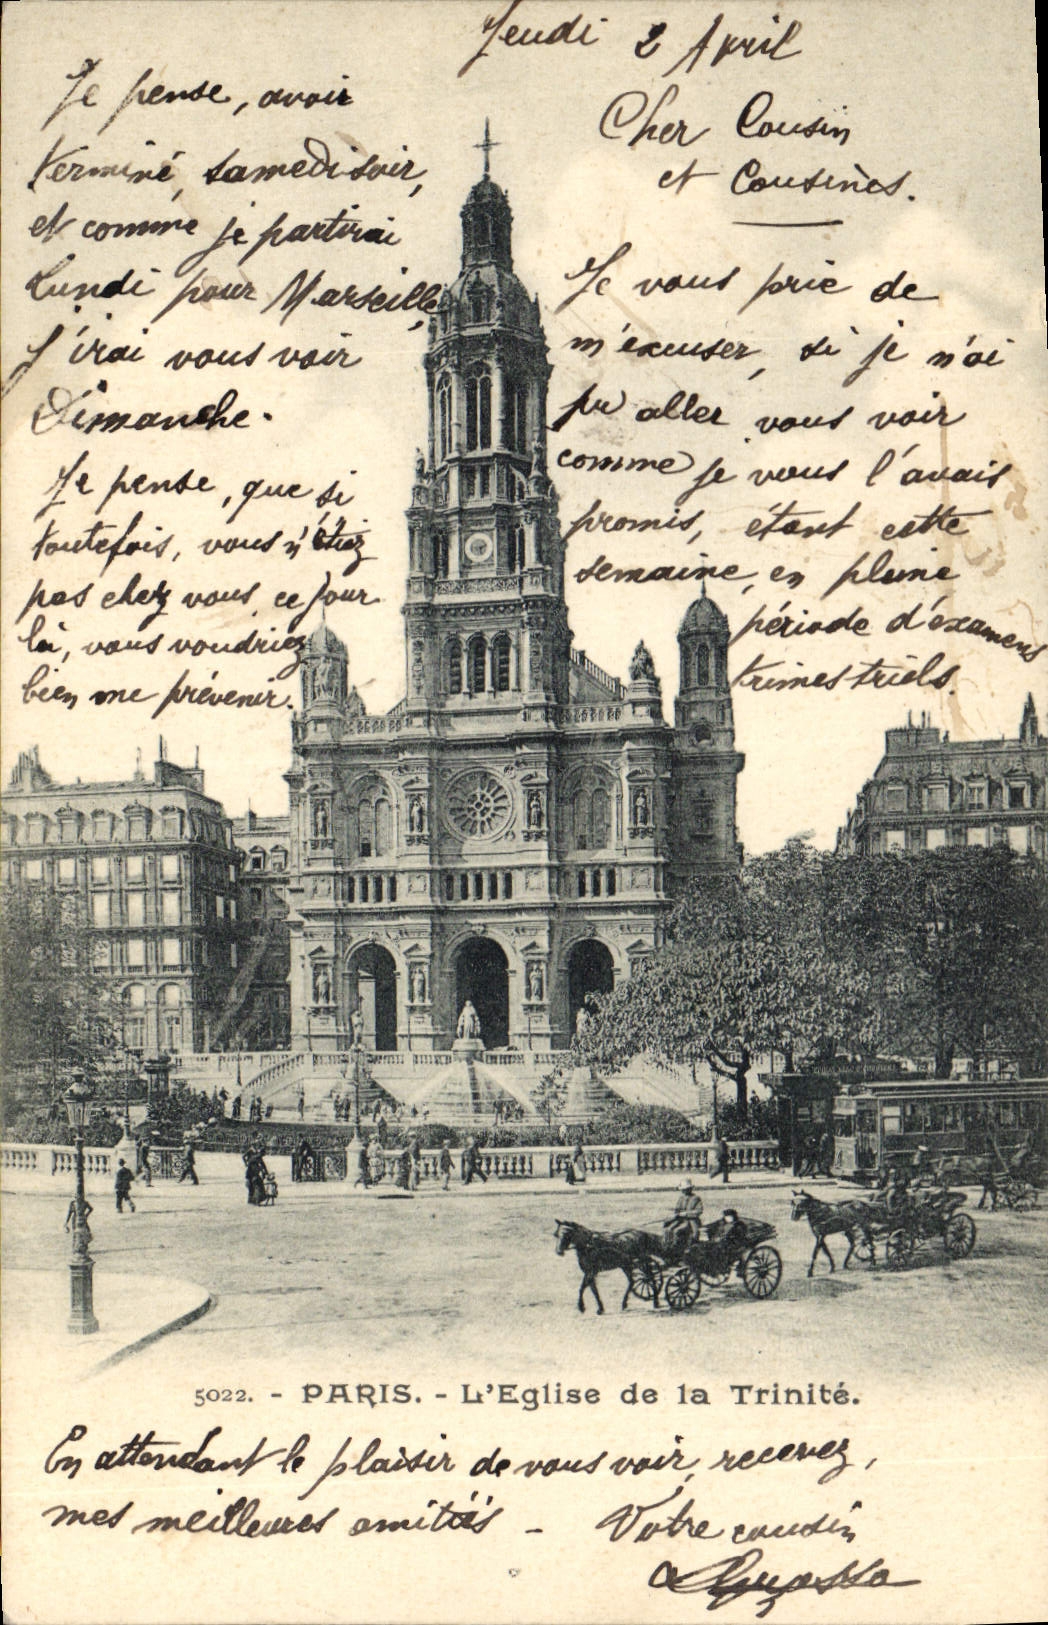 Jeudi 2 April
Cher Cousin
et Cousines.
Je vous prie de
m'excuser, si je n'ai
pu aller vous voir
comme je vous l'avais
promis, étant cette
semaine, en pleine
période d'éxamens
trimestriels.
Je pense, avoir
terminé, samedi soir,
et comme je partirai
Lundi pour Marseille,
j'irai vous voir
Dimanche.
Je pense, que si
toutefois, vous n'étiez
pas chez vous, ce jour
là, vous voudriez
bien me prévenir.
5022. - PARIS. - L'Eglise de la Trinité.
En attendant le plaisir de vous voir, recevez,
mes meilleures amitiés - Votre cousin